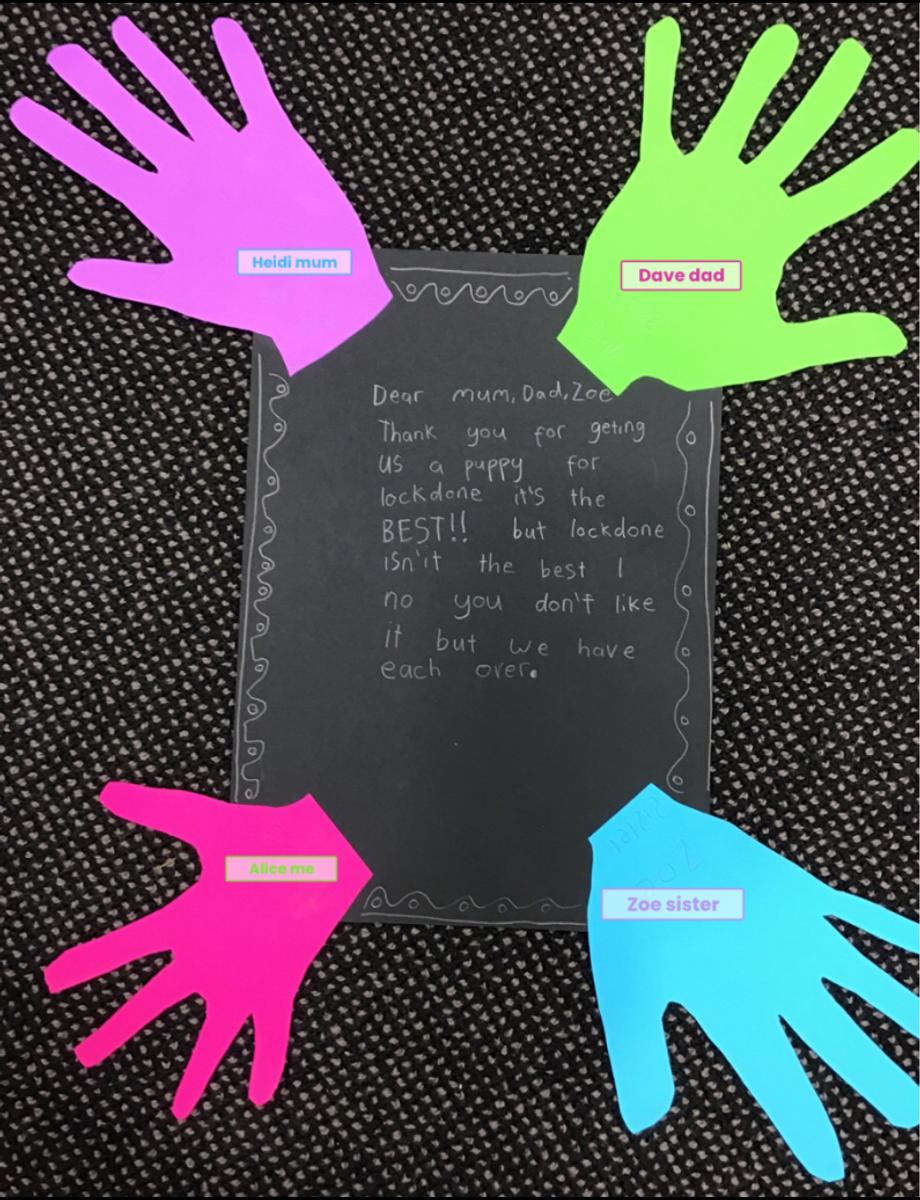 Heidi mum
Dave dad
Dear mum, Dad, Zoe
Thank you for geting
us a puppy for
lockdone it's the
BEST!! but lockdone
isn'it the best I
no you don't like
it but we have
each over.
Alice me
sister
Zoe
Zoe sister